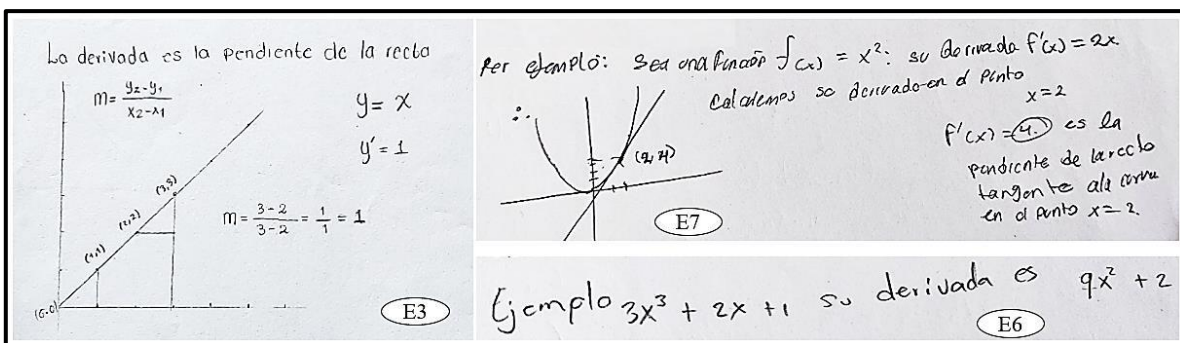 La derivada es la pendiente de la recta
m = (y₂-y₁)/(x₂-x₁)
y = x
y' = 1
(3,3)
(2,2)
m = (3-2)/(3-2) = 1/1 = 1
(1,1)
(0,0)
E3
Per ejemplo: Sea una función f(x) = x²: su derivada f'(x) = 2x.
Calculemos su derivada en el punto
x=2
f'(x) = 4. es la
pendiente de la recta
tangente a la curva
en el punto x=2.
(2,4)
E7
Ejemplo 3x³ + 2x + 1 su derivada es 9x² + 2
E6